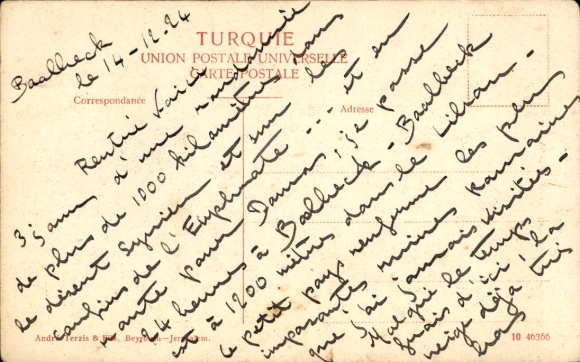 TURQUIE
UNION POSTALE UNIVERSELLE
CARTE POSTALE
Correspondance
Adresse
Baalbeck
le 14-12-24
Rentré hier d'une randonnée
de plus de 1000 kilomètres dans
le désert Syrien et sur les
confins de l'Euphrate --- et en
route pour Damas, je passe
24 heures à Baalbeck - Baalbeck
est à 1200 mètres dans le Liban -
Ce petit pays renferme les plus
imposantes ruines romaines
que j'ai jamais visitées -
Malgré le temps
d'ici, la
neige déjà très
bas
André Terzis & Fils, Beyrouth—Jerusalem.
10 46366